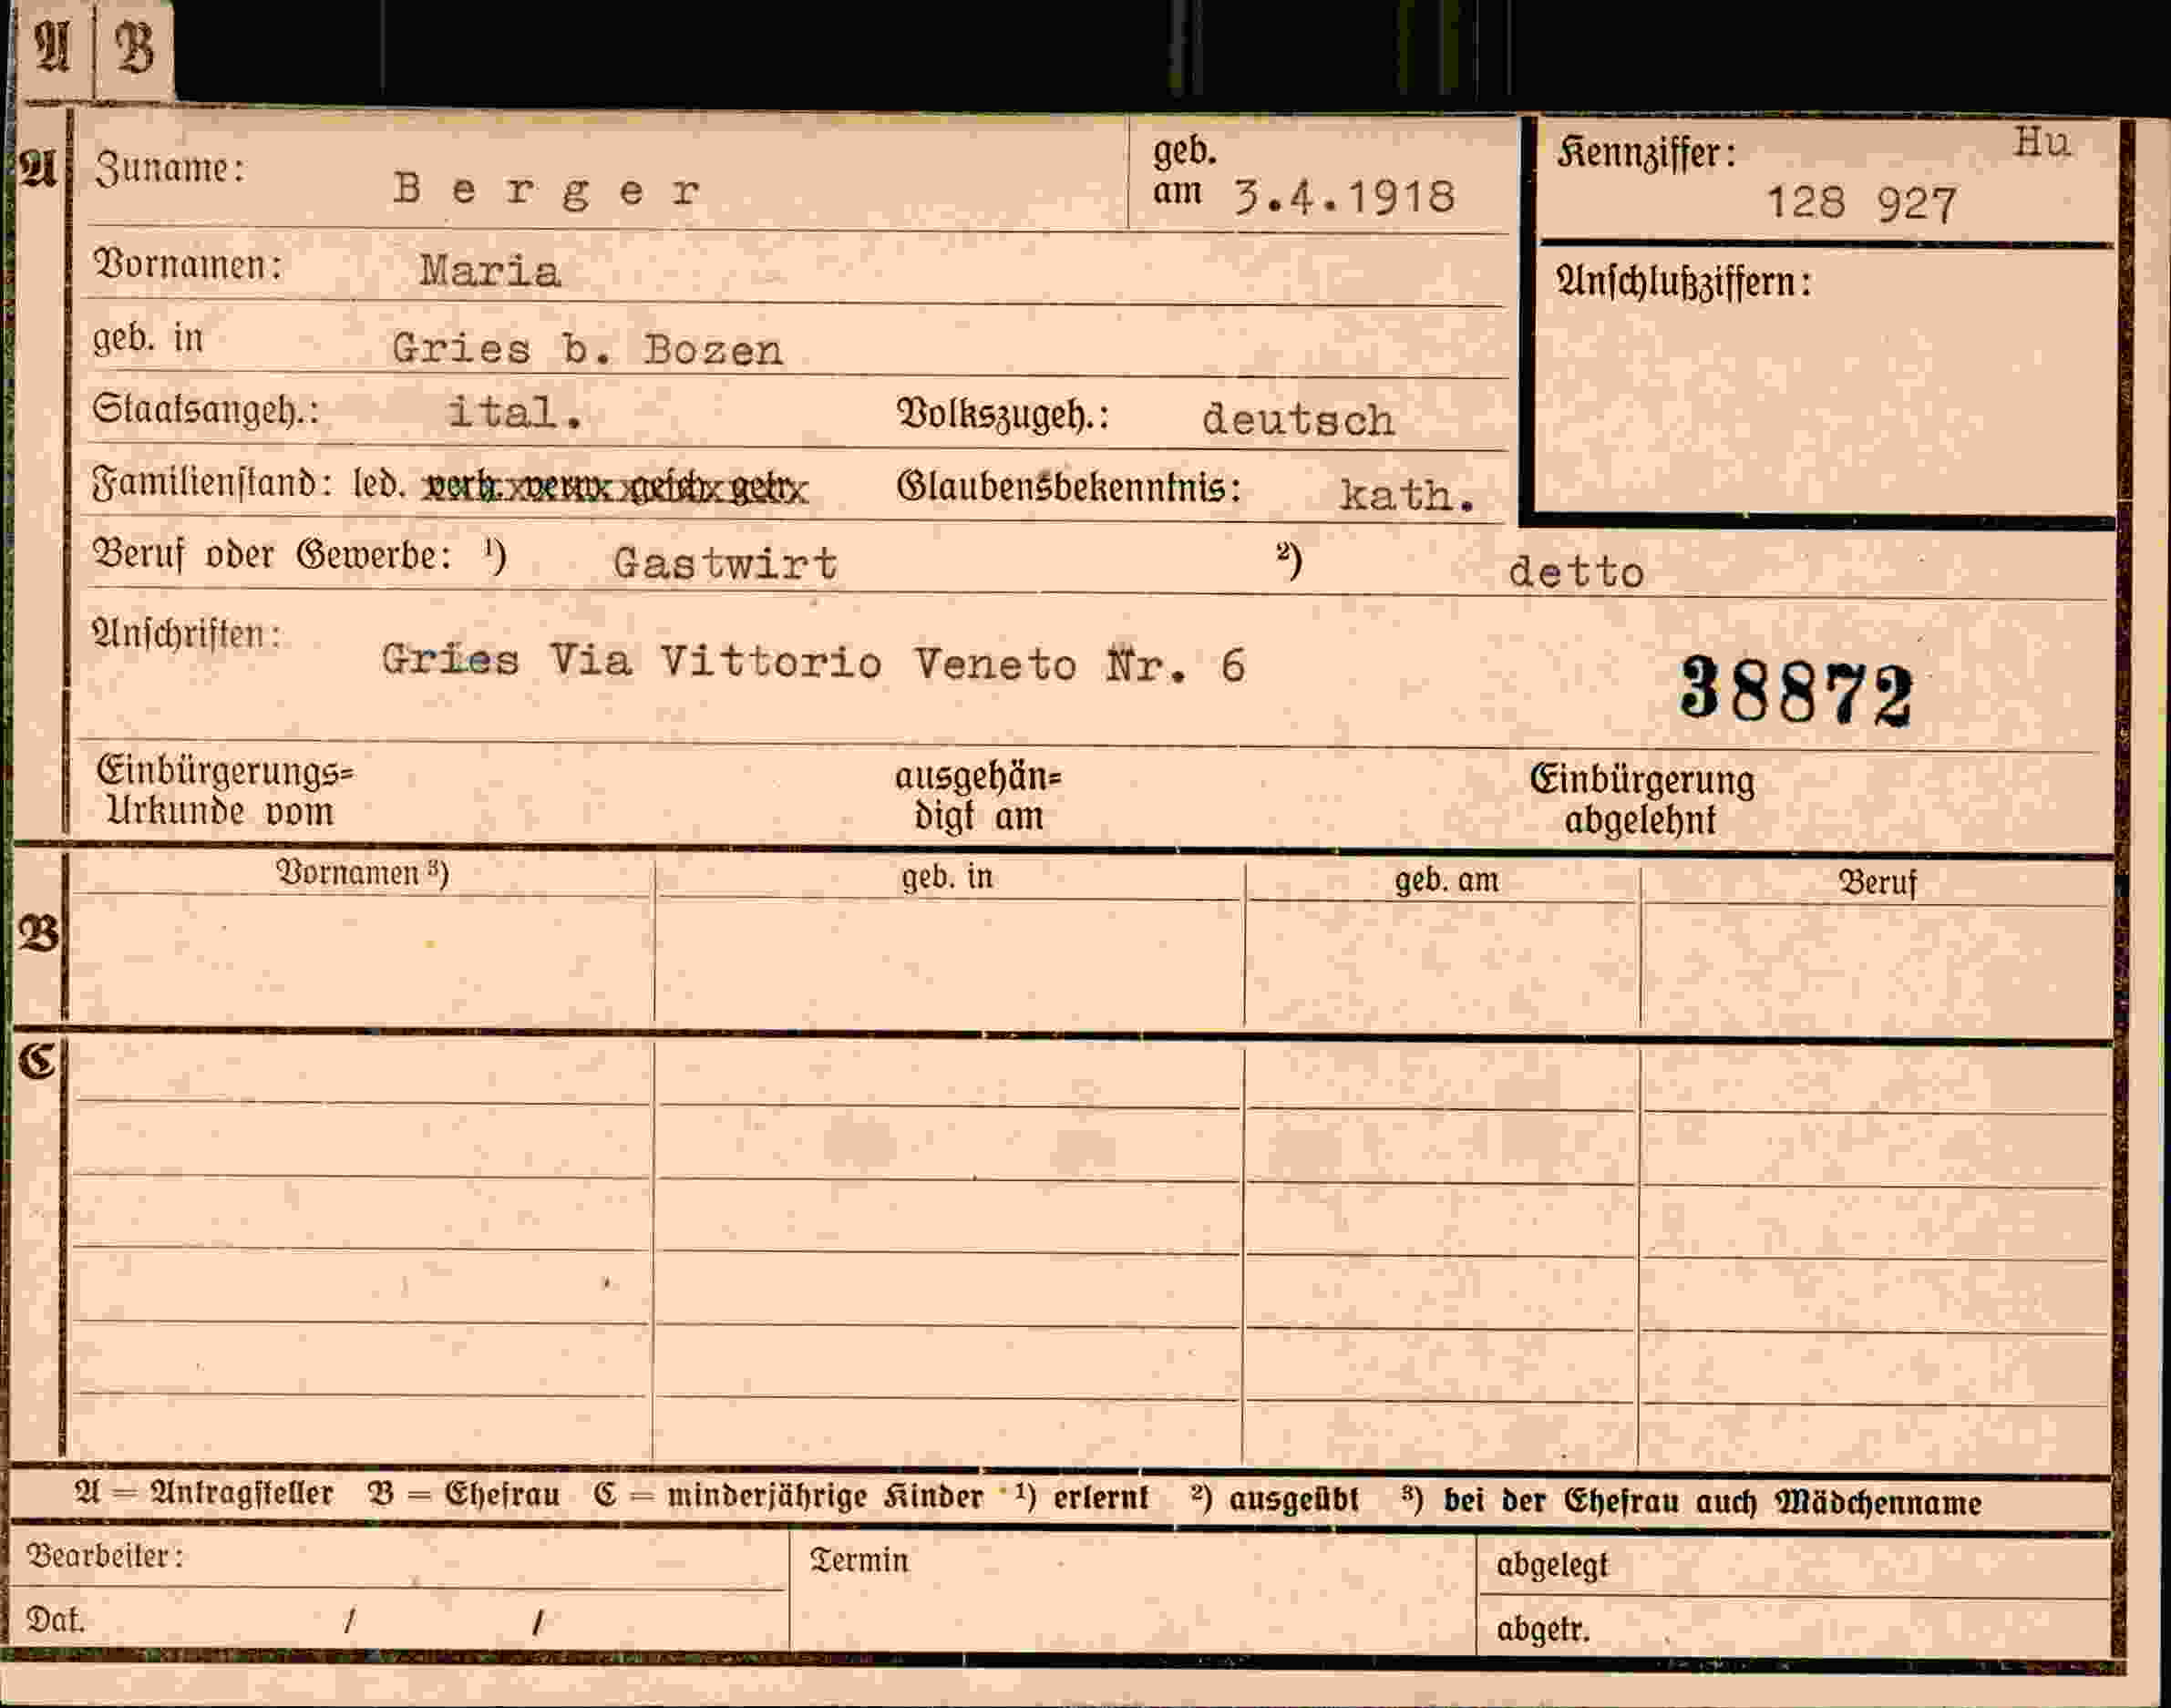 A B
A Zuname: Berger geb. am 3.4.1918 Kennziffer: Hu
128 927
Vornamen: Maria Anschlußziffern:
geb. in Gries b. Bozen
Staatsangeh.: ital. Volkszugeh.: deutsch
Familienstand: led. verh. verw. gesch. getr. Glaubensbekenntnis: kath.
Beruf oder Gewerbe: ¹) Gastwirt ²) detto
Anschriften: Gries Via Vittorio Veneto Nr. 6 38872
Einbürgerungs= ausgehän= Einbürgerung
Urkunde vom digt am abgelehnt
Vornamen ³) geb. in geb. am Beruf
B
C
A = Antragsteller B = Ehefrau C = minderjährige Kinder ¹) erlernt ²) ausgeübt ³) bei der Ehefrau auch Mädchenname
Bearbeiter: Termin abgelegt
Dat. / / abgetr.